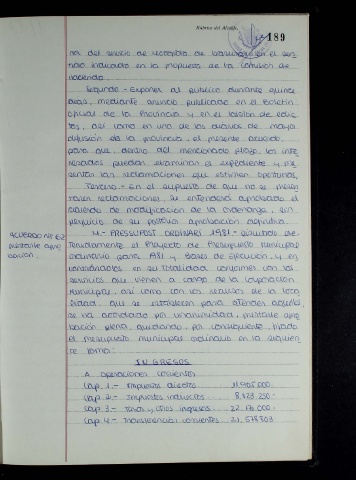 Rúbrica del Alcalde,
189
za del servicio de recogida de basuras en el sen-
tido indicado en la propuesta de la Comisión de
Hacienda.
Segundo.- Exponer al público durante quince
días, mediante anuncio publicado en el Boletín
oficial de la Provincia y en el tablón de edic-
tos, así como en uno de los diarios de mayor
difusión de la provincia, el presente acuerdo,
para que, dentro del mencionado plazo, los inte-
resados puedan examinar el expediente y pre-
sentar las reclamaciones que estimen oportunas.
Tercero.- En el supuesto de que no se presen-
tasen reclamaciones, se entenderá aprobado el
acuerdo de modificación de la Ordenanza, sin
perjuicio de su posterior aprobación definitiva.
ACUERDO Nº 62
mediante apro
bación.
4.- PRESSUPOST ORDINARI 1981.- Examinado de-
tenidamente el Proyecto de Presupuesto Municipal
ordinario para 1981 y Bases de Ejecución y en-
contrándolos en su totalidad conformes con los
servicios que vienen a cargo de la Corporación
Municipal, así como con los recursos de la loca
lidad, que se establecen para atender aquéllos
se ha acordado por unanimidad, prestarle apro
bación plena, quedando, por consiguiente, fijado
el presupuesto municipal ordinario en la siguien
te forma:
INGRESOS
A. Operaciones corrientes
Cap. 1.- Impuestos directos 11.905.000.-
Cap. 2.- Impuestos indirectos 8.423.250.-
Cap. 3.- Tasas y otros ingresos 22.176.000.-
Cap. 4.- Transferencias corrientes 21.578.803